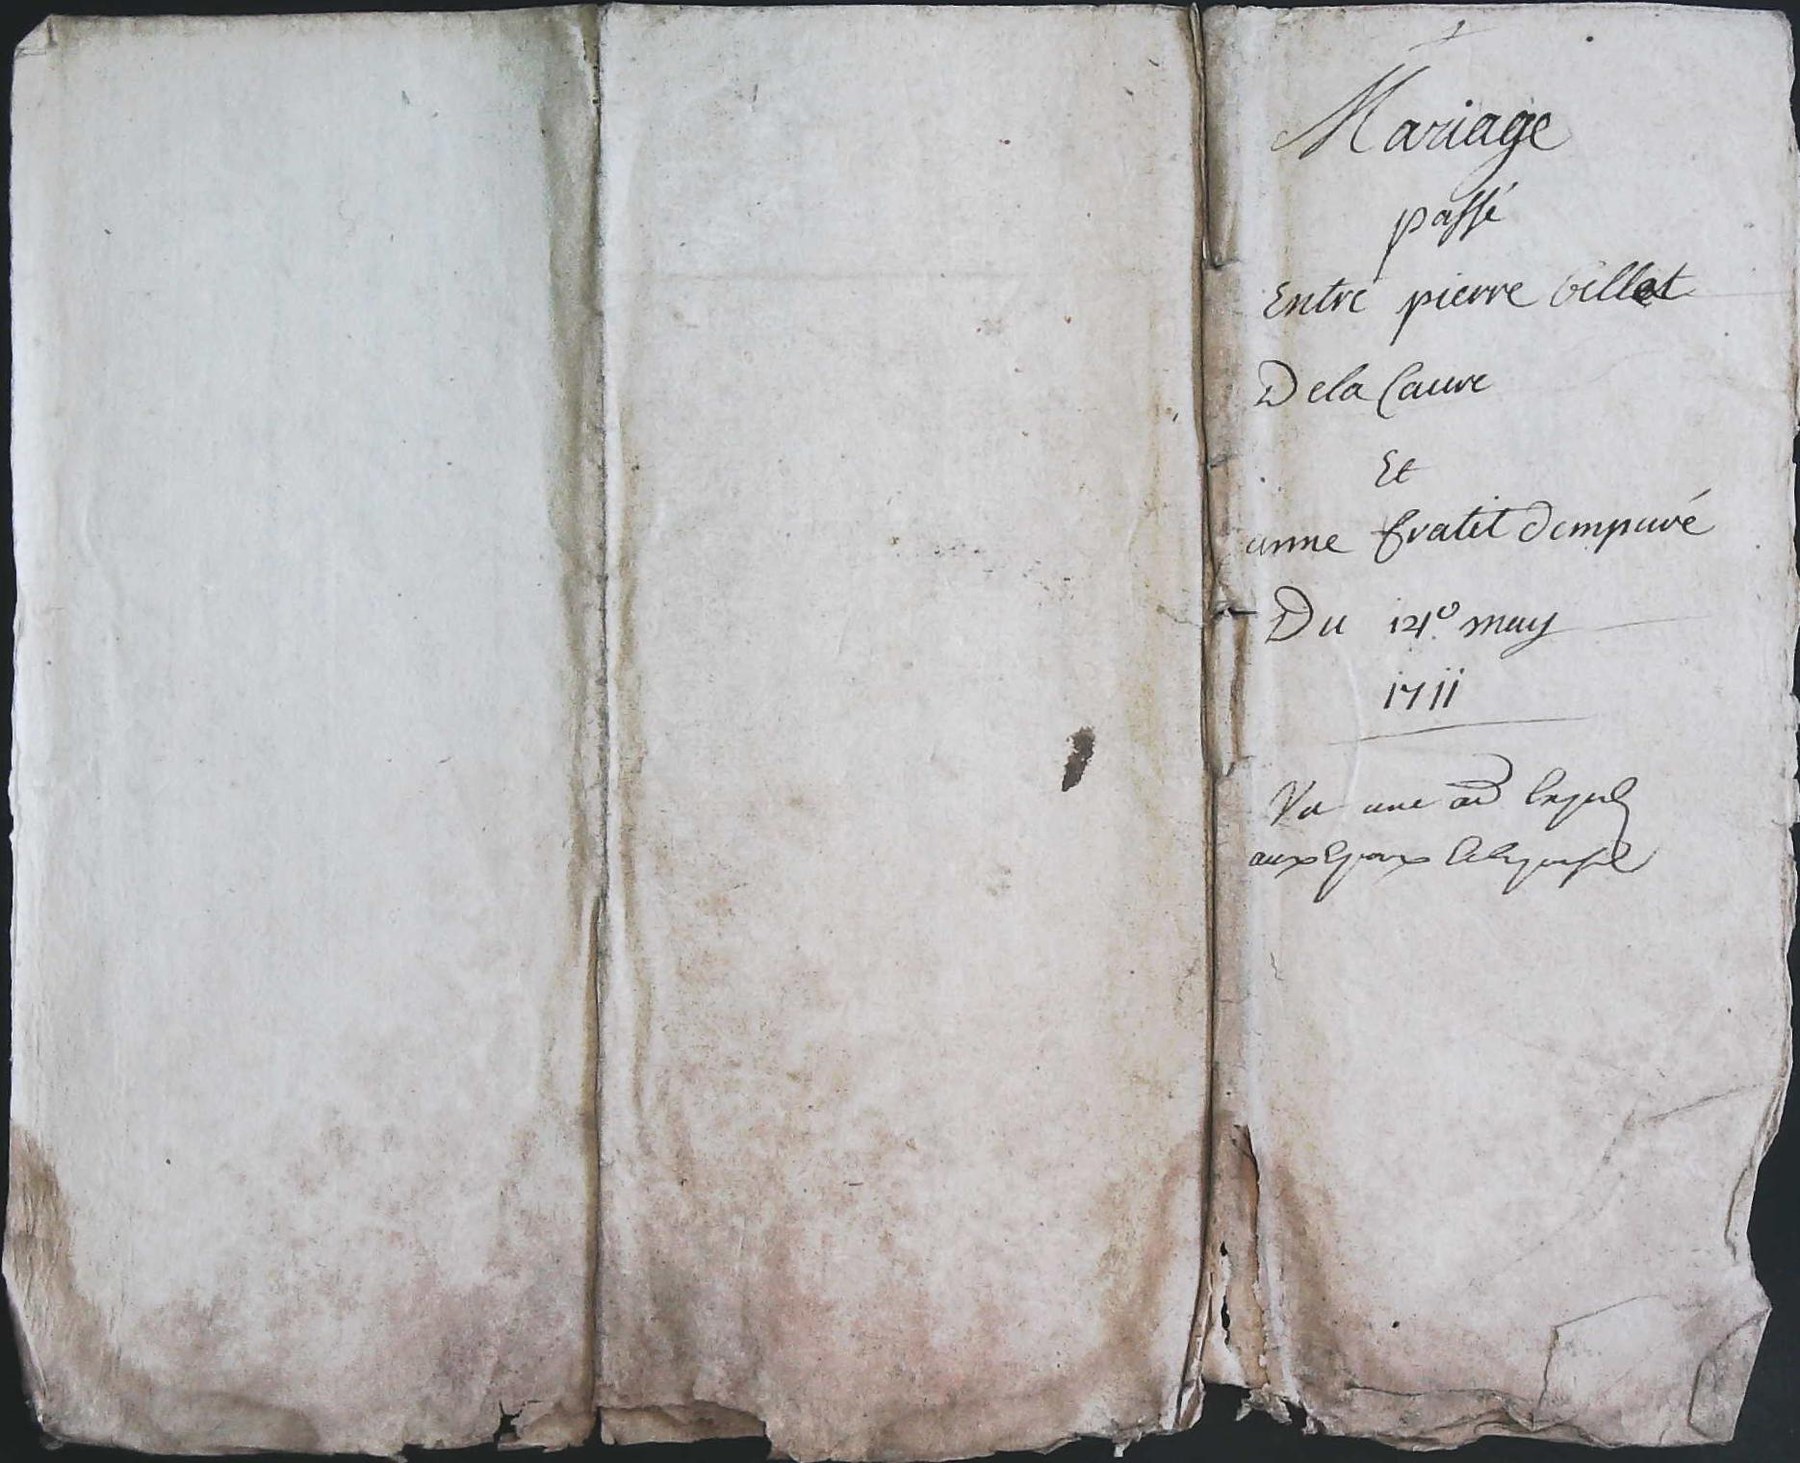 Mariage
passé
Entre pierre billet
De la Cauve
Et
anne fratit dempuré
Du 12e. may
1711
Va une
aux